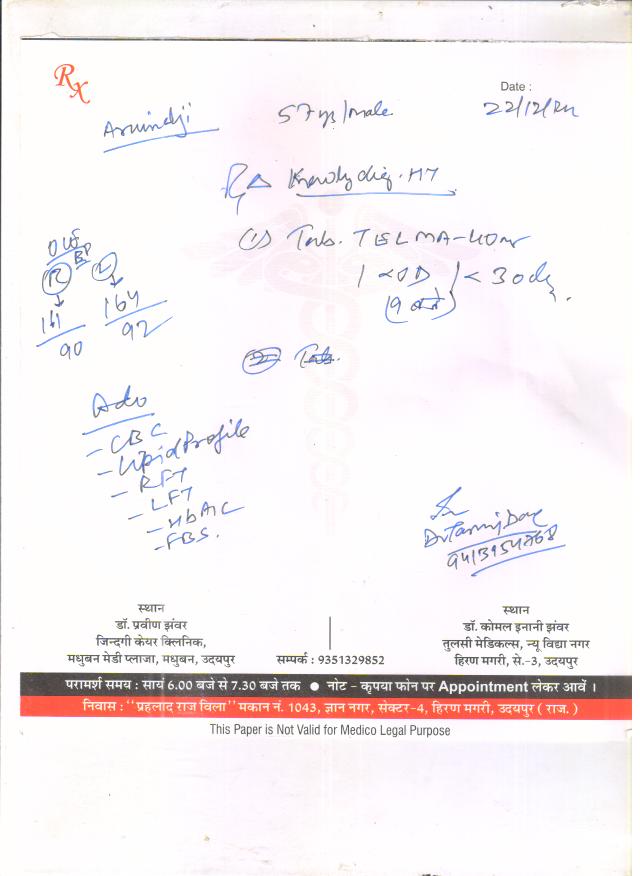 Rx
Date :
22/12/
57 yrs/male
Newly diag. HT
(1) Tab. TELMA-40mg
1 < OD } < 30 days
(9 बजे)
O/E
BP
(R) (L)
161/90 164/92
(2) Tab.
Adv
- CBC
- Lipid Profile
- RFT
- LFT
- HbA1C
- FBS.
स्थान
डॉ. प्रवीण झंवर
जिन्दगी केयर क्लिनिक,
मधुबन मेडी प्लाजा, मधुबन, उदयपुर
सम्पर्क : 9351329852
स्थान
डॉ. कोमल इनानी झंवर
तुलसी मेडिकल्स, न्यू विद्या नगर
हिरण मगरी, से.-3, उदयपुर
परामर्श समय : सायं 6.00 बजे से 7.30 बजे तक ● नोट - कृपया फोन पर Appointment लेकर आवें ।
निवास : "प्रहलाद राज विला" मकान नं. 1043, ज्ञान नगर, सेक्टर-4, हिरण मगरी, उदयपुर ( राज. )
This Paper is Not Valid for Medico Legal Purpose